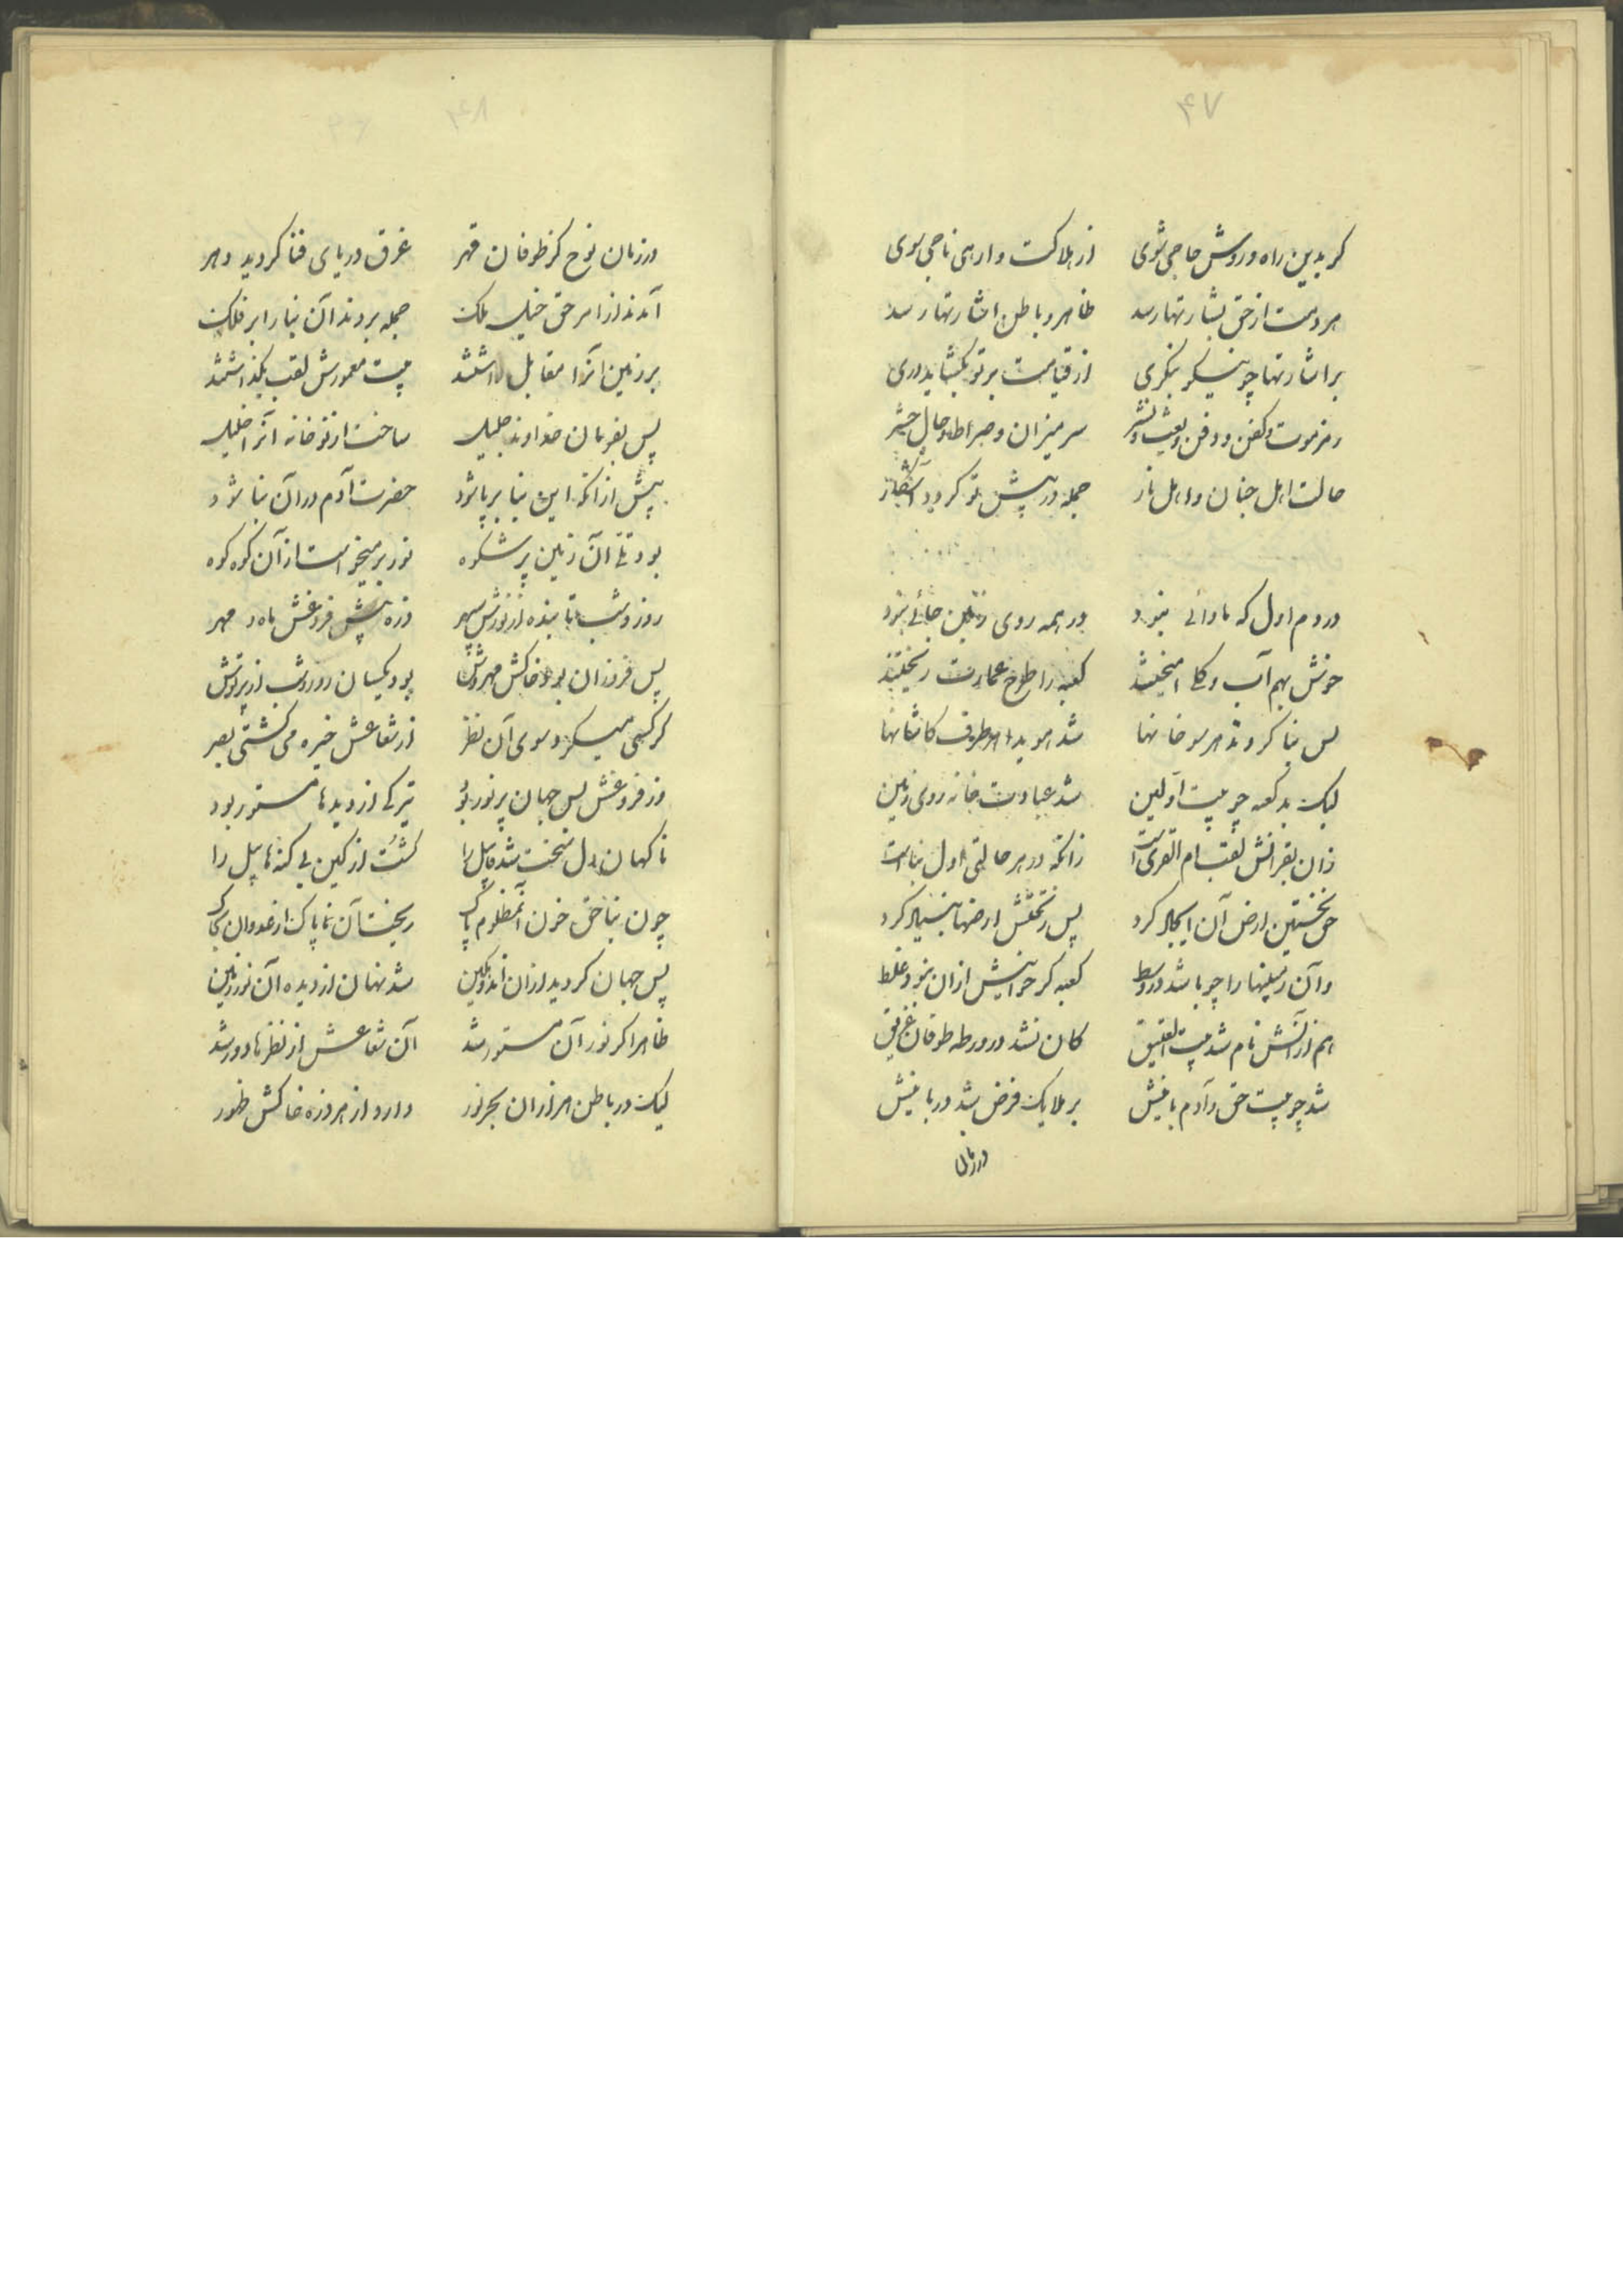 ۴۷
کر بدین راه و روش حاجی شوی از هلاکت وارهی ناجی شوی
هر دمت از حق بشارتها رسد ظاهر و باطن اشارتها رسد
بر اشارتها چو نیکو بنکری از قیامت بر تو بکشاید دری
رمز موت و کفن و دفن و بعث و نشر سر میزان و صراط و حال حشر
حالت اهل جنان و اهل نار جمله در پیش تو کردد آشکار
در دم اول که ماوائی نبود در همه روی زمین جائی نبود
خوش بهم آب و کلی آمیختند کعبه را طرح عمارت ریختند
پس بنا کردند هر سو خانها شد هویدا هر طرف کاشانها
لیک بد کعبه چو بیت اولین شد عبادت خانه روی زمین
زان بقرانش لقب ام القری است زانکه در هر حالتی اول بناست
حق نخستین ارض آن ایجاد کرد پس ز تحتش ارضها بنیاد کرد
وان زمینها را چو باشد در وسط کعبه کر خوانیش ازان نبود غلط
هم ازانش نام شد بیت العتیق کان نشد در ورطه طوفان غریق
شد چو بیت حق و آدم بانیش بر ملایک فرض شد دربانیش
در زمان
۴۸
در زمان نوح کز طوفان قهر غرق دریای فنا کردید دهر
آمدند از امر حق خیل ملک جمله بردند آن بنا را بر فلک
بر زمین آنرا مقابل داشتند بیت معمورش لقب بکذاشتند
پس بفرمان خداوند جلیل ساخت از نو خانه آنرا خلیل
پیش ازانکه این بنا بر پا شود حضرت آدم در آن بنا شود
بود تلی آن زمین پر شکوه نور بر میخواست از آن کوه کوه
روز و شب تابنده از نورش سپهر ذره پیش فروغش ماه و مهر
پس فروزان بود خاکش مهروش بود یکسان روز و شب از پرتوش
کر کسی میکرد سوی آن نظر از شعاعش خیره می کشتی بصر
وز فروغش پس جهان پر نور بود تیرکی از دیدها مستور بود
ناکهان دل سخت شد قابیل را کشت از کین بی کنه هابیل را
چون بناحق خون آنمظلوم پاک ریخت آن ناپاک از عدوان بخاک
پس جهان کردید ازان اندوهکین شد نهان از دیده آن نور زمین
ظاهرا کر نور آن مستور شد آن شعاعش از نظرها دور شد
لیک در باطن هزاران بحر نور دارد از هر ذره خاکش ظهور